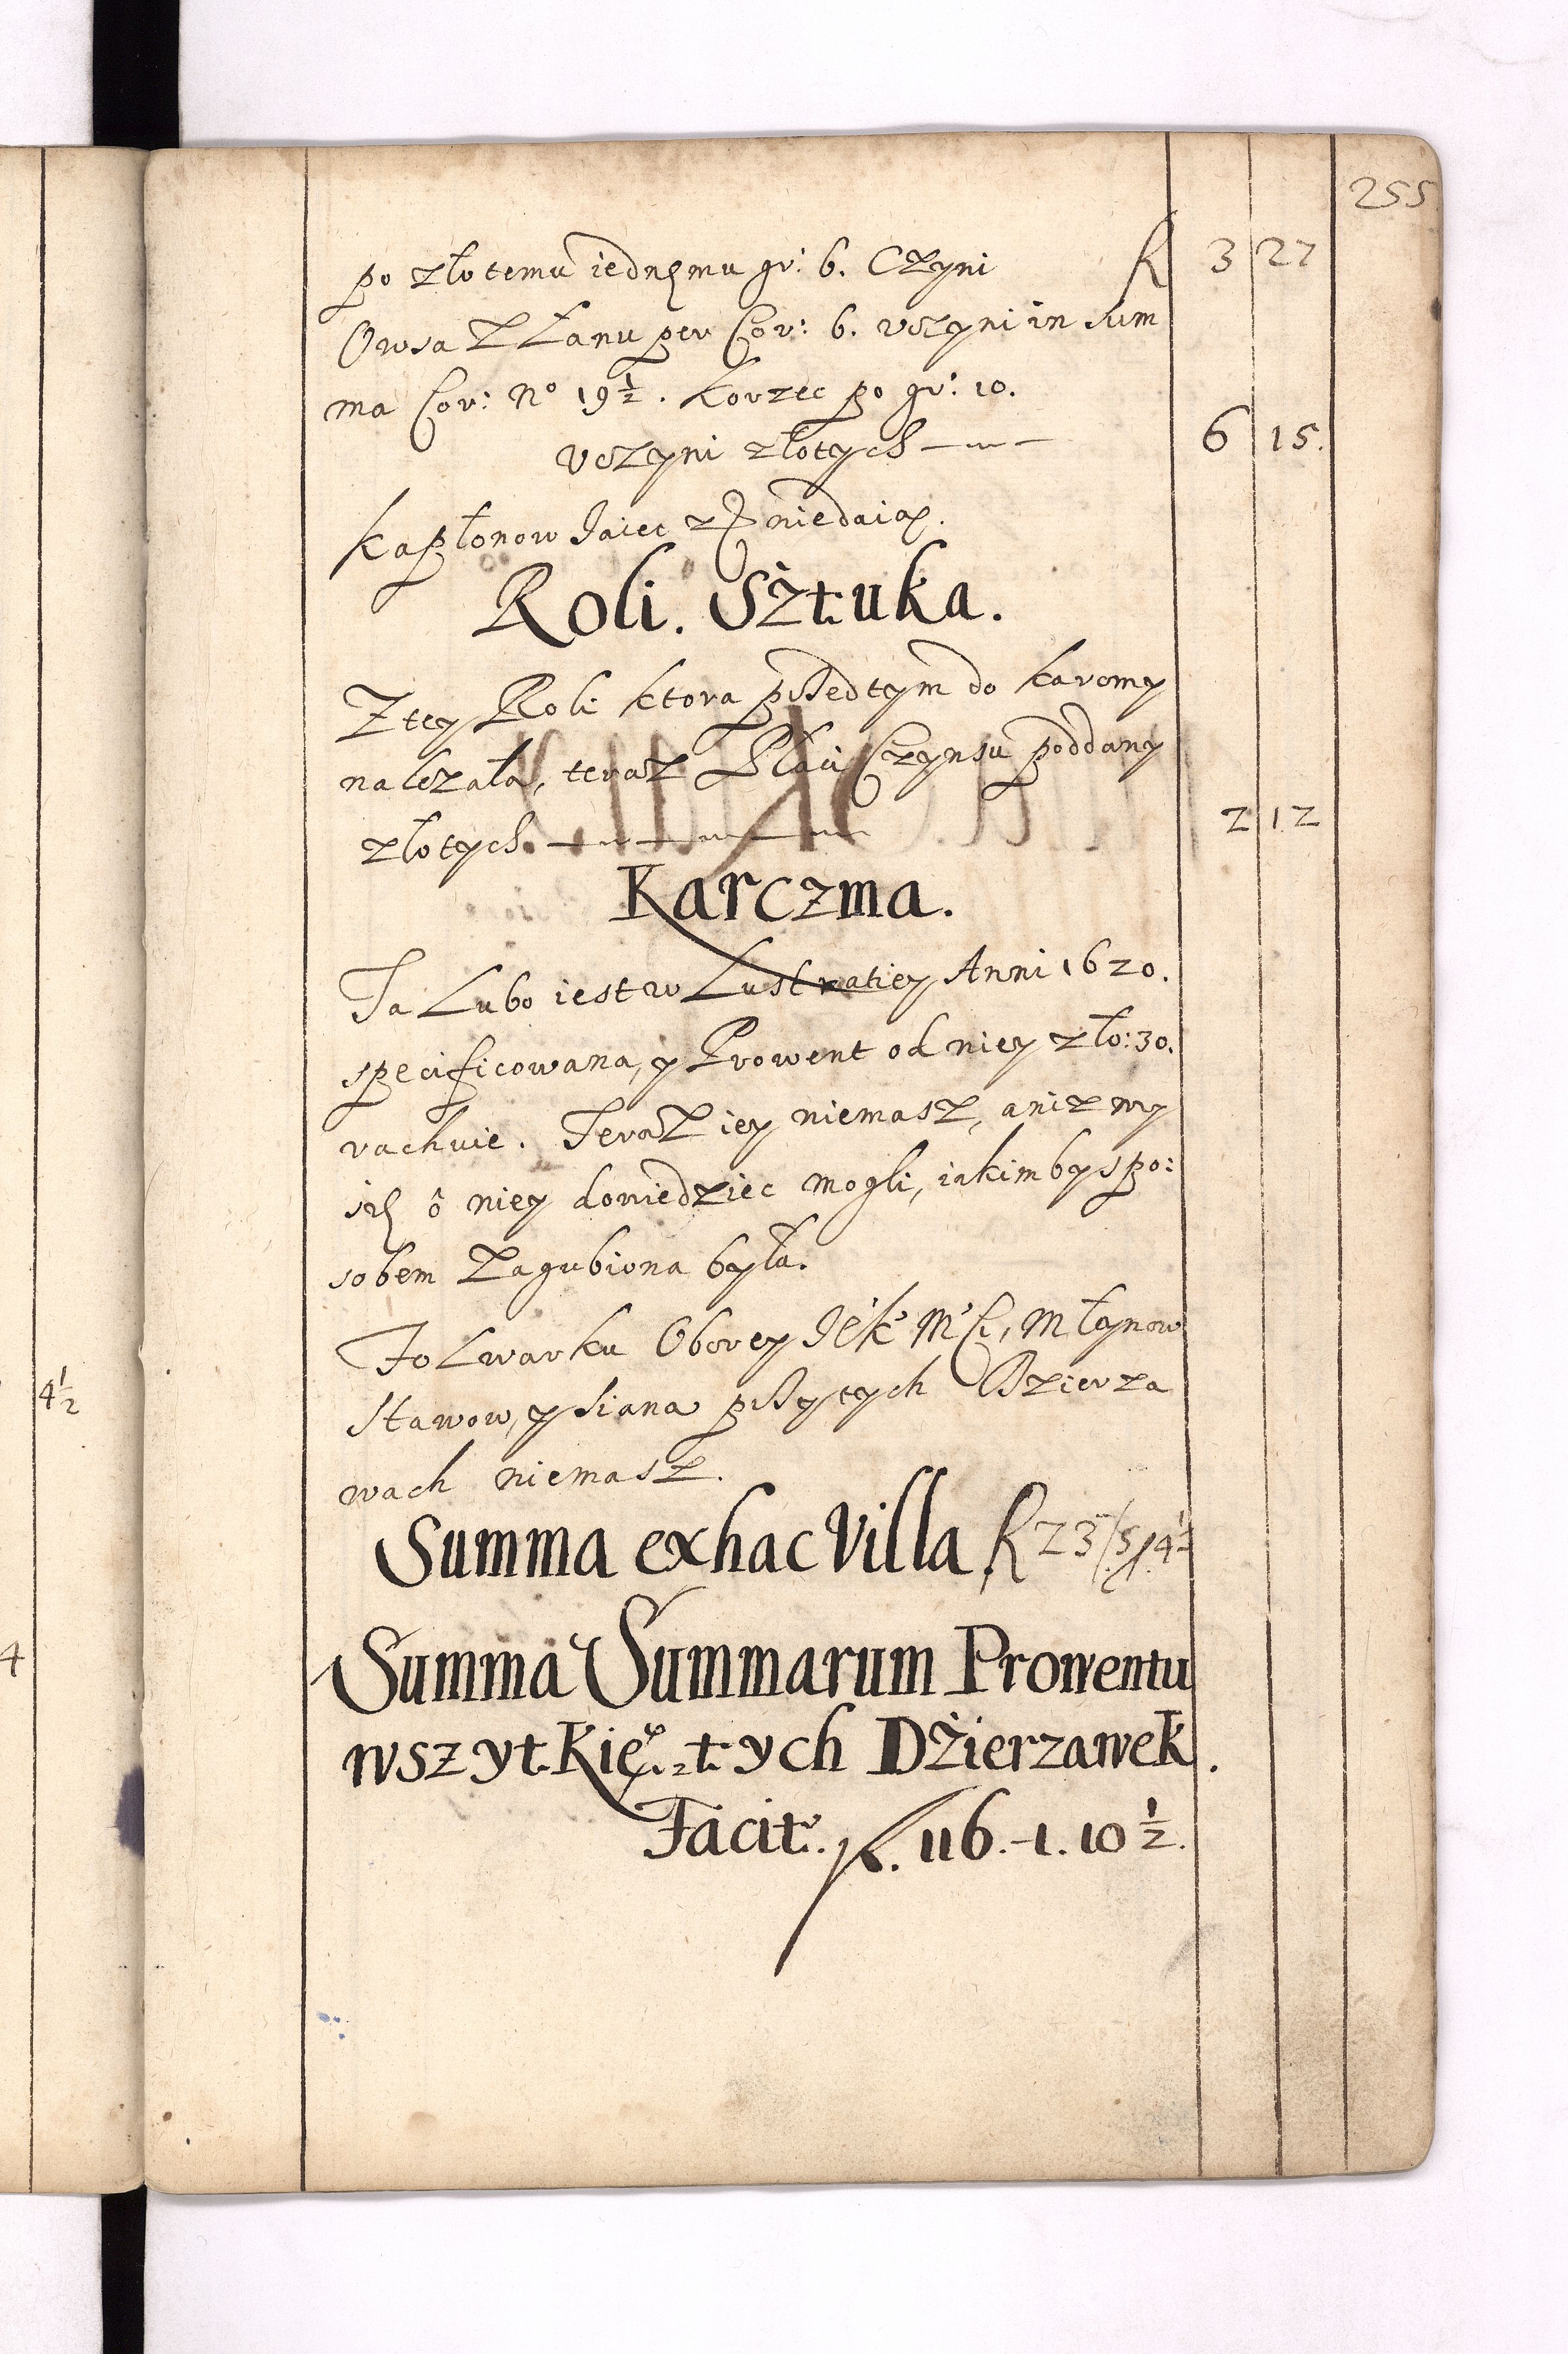 255
po złotemu iednemu gr: 6. Czyni fl 3 27
Owsa z Łanu per Cor: 6. vczyni in Sum
ma Cor: No 19½. Korzec po gr: 10.
vczyni złotych 6 15.
Kapłonow Jaiec niedaią.
Roli. Sztuka.
Z tey Roli ktora przedtym do karcmy
nalezała, teraz Płaci Czynsu poddany
złotych. 2 12
Karczma.
Ta Lubo iest w Lustratiey Anni 1620.
specificowana, y Prowent od niey zło: 30.
rachuie. Teraz iey niemasz, anizmy
się ô niey dowiedziec mogli, iakimby spo:
sobem zagubiona była.
Folwarku Oborey JeK Mci, Młynow
Stawow, y Siana przytych Dzierza
wach niemasz.
Summa ex hac Villa fl 23/5/4½
Summa Summarum Prowentu
wszytkie z tych Dzierzawek.
Facit. fl. 116.-1.10½.
4½
4